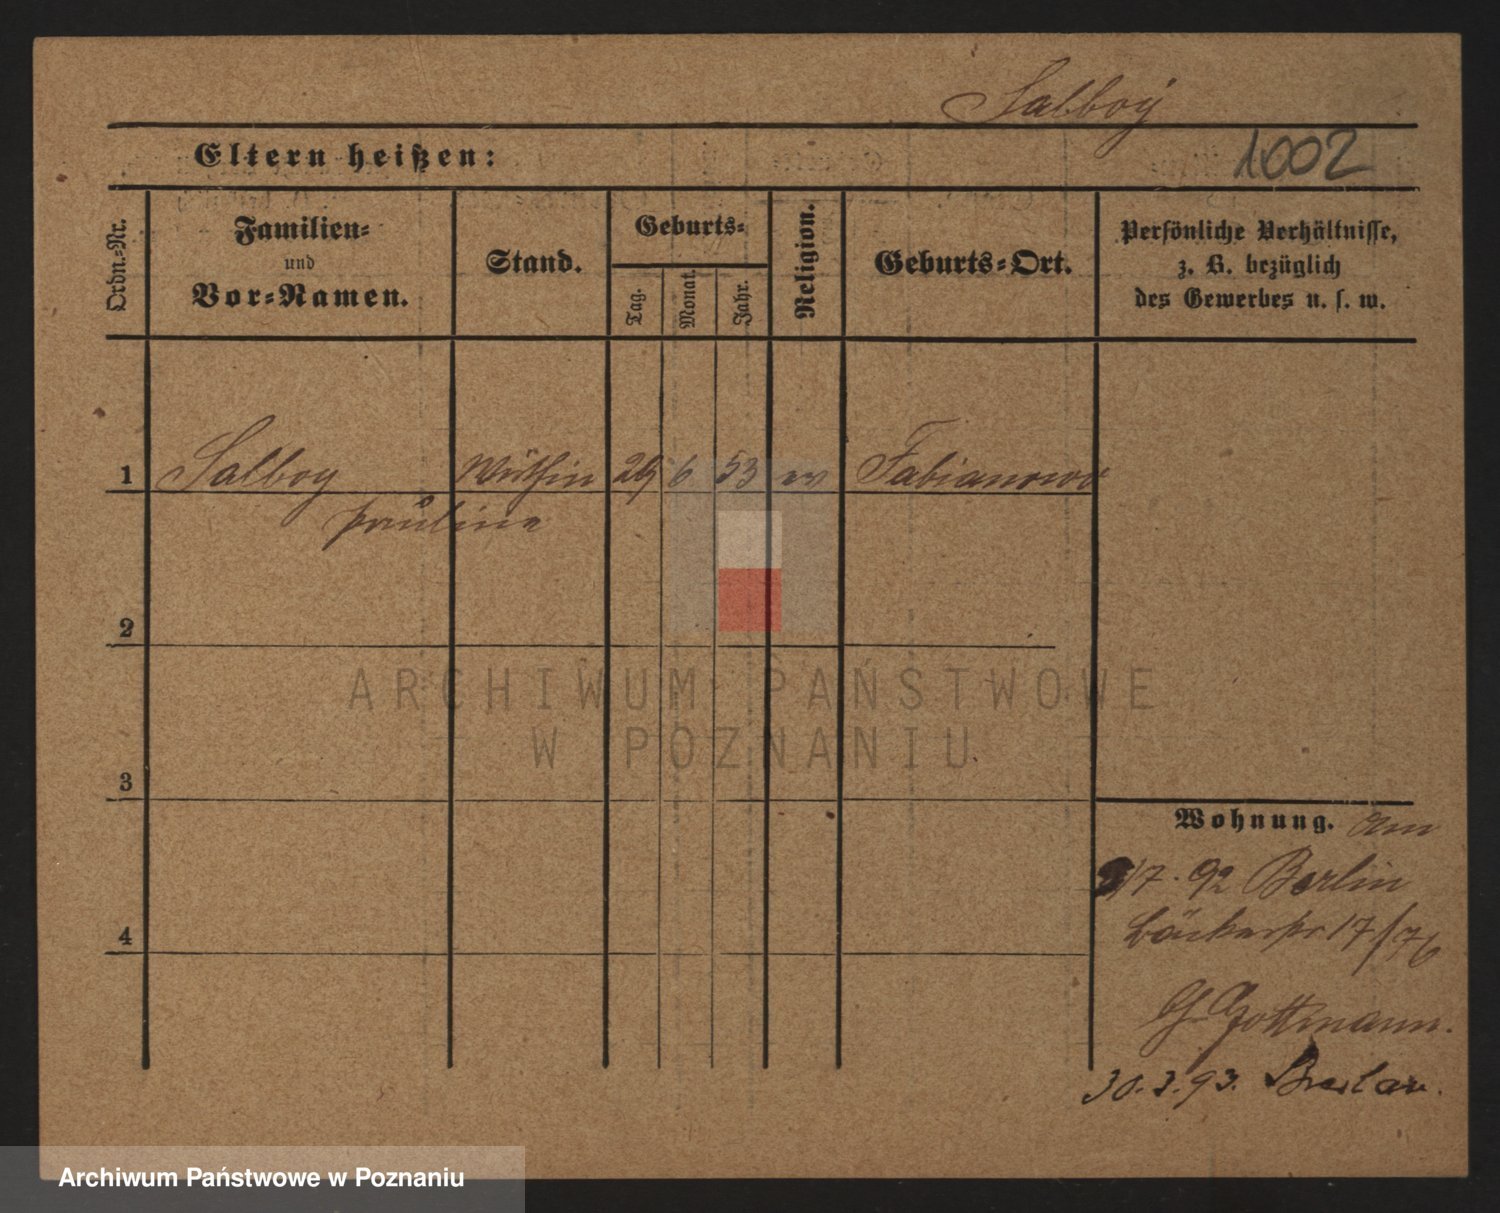 Salboy
Eltern heißen:
1002
Ordn.-Nr.
Familien-
und
Vor-Namen.
Stand.
Geburts-
Tag.
Monat.
Jahr.
Religion.
Geburts-Ort.
Persönliche Verhältnisse,
z. B. bezüglich
des Gewerbes u. s. w.
1 Salboy 6 53 ev Fabianowo
Paulina
2
ARCHIWUM PAŃSTWOWE
W POZNANIU
3
Wohnung. Am
7. 92 Berlin
17/76
Gottmann.
30.3.93. Breslau.
4
Archiwum Państwowe w Poznaniu